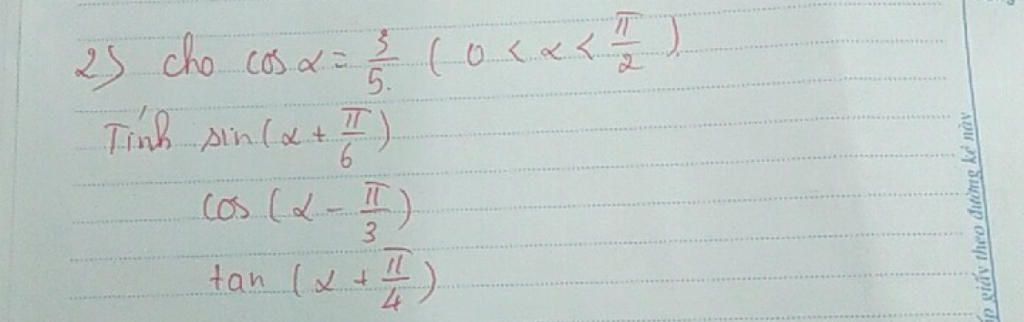 2) cho cos α = 3/5. ( 0 < α < π/2 ).
Tính sin(α + π/6)
cos (α - π/3)
tan (α + π/4)
ấp giấy theo đường kẻ này